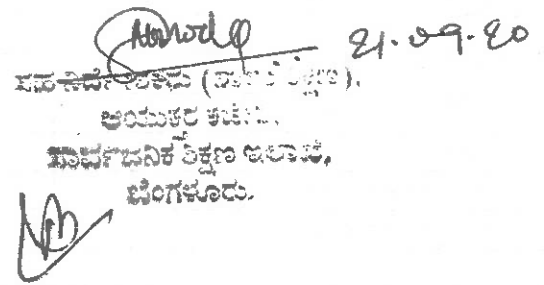 21.09.20
ಸಹ ನಿರ್ದೇಶಕರು (ಶಾಲಾ ಶಿಕ್ಷಣ),
ಆಯುಕ್ತರ ಕಚೇರಿ,
ಸಾರ್ವಜನಿಕ ಶಿಕ್ಷಣ ಇಲಾಖೆ,
ಬೆಂಗಳೂರು.